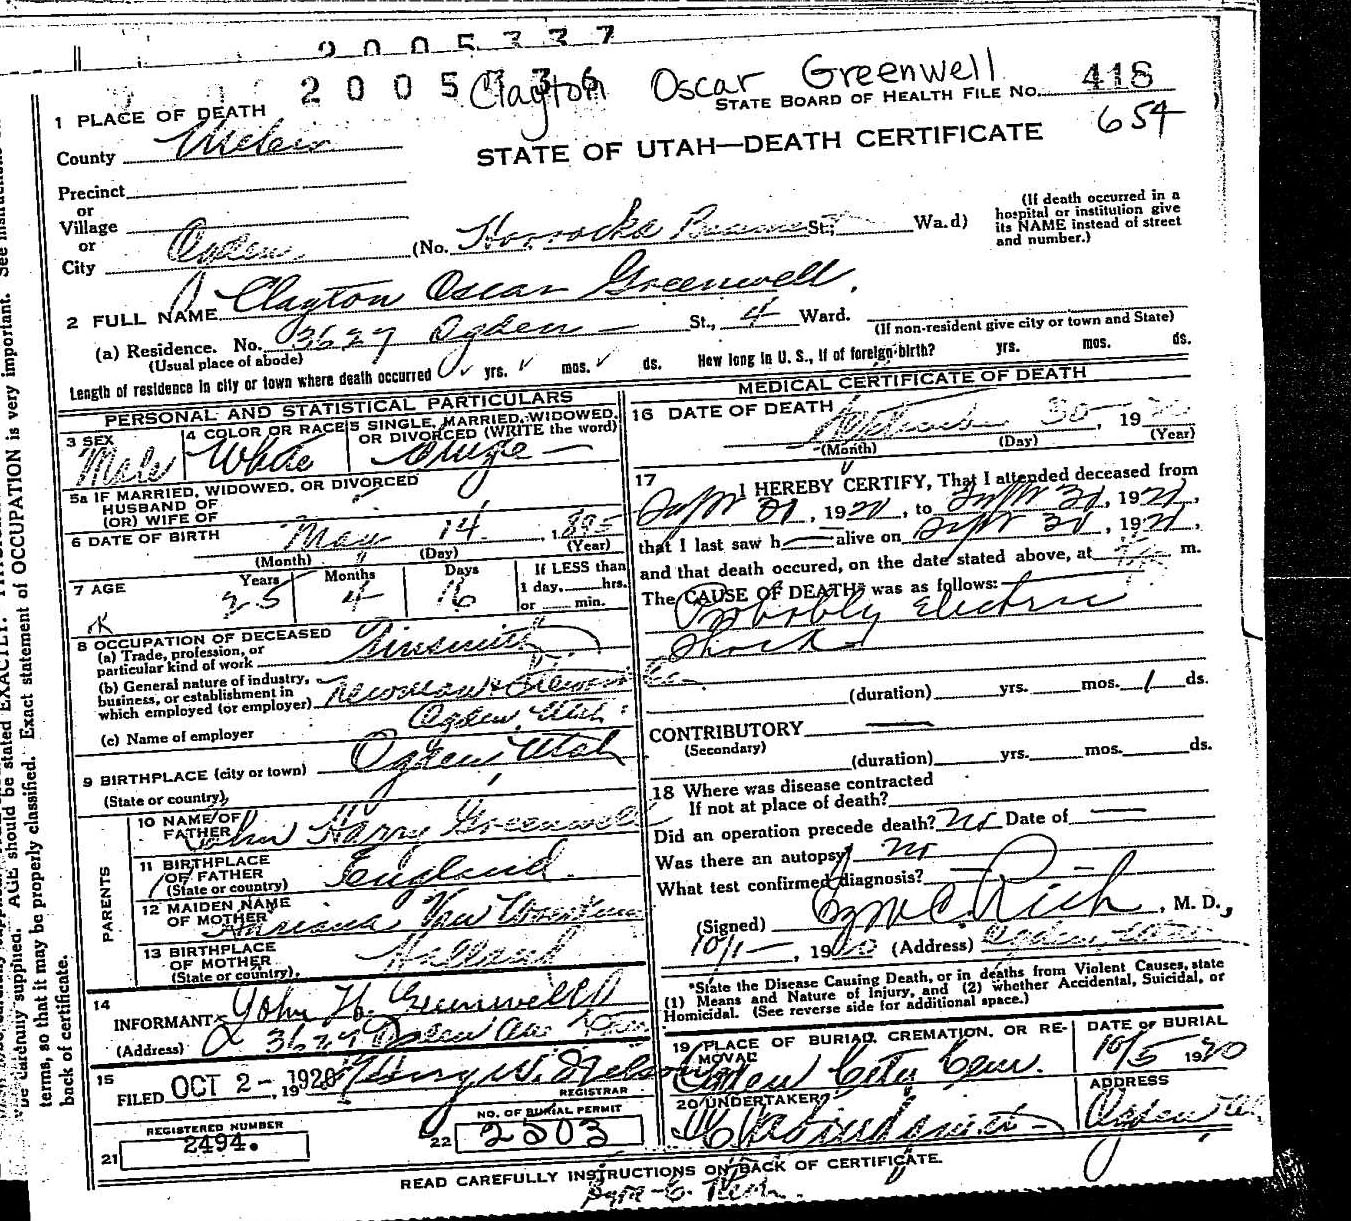 2005337
2005336 Clayton Oscar Greenwell
STATE BOARD OF HEALTH FILE No. 418
654
1 PLACE OF DEATH
County
STATE OF UTAH—DEATH CERTIFICATE
Precinct
or
Village
or
City Ogden (No. Horrocks St; Wa.d)
(If death occurred in a
hospital or institution give
its NAME instead of street
and number.)
2 FULL NAME Clayton Oscar Greenwell.
(a) Residence. No. 3627 Ogden — St., 4 Ward.
(Usual place of abode)
(If non-resident give city or town and State)
Length of residence in city or town where death occurred yrs. mos. ds. How long in U. S., if of foreign birth? yrs. mos. ds.
PERSONAL AND STATISTICAL PARTICULARS
3 SEX 4 COLOR OR RACE 5 SINGLE, MARRIED, WIDOWED,
OR DIVORCED (WRITE the word)
Male White Single —
5a IF MARRIED, WIDOWED, OR DIVORCED
HUSBAND OF
(OR) WIFE OF
6 DATE OF BIRTH May 14, 1895
(Month) (Day) (Year)
7 AGE Years Months Days If LESS than
25 4 16 1 day, hrs.
or min.
OK
8 OCCUPATION OF DECEASED
(a) Trade, profession, or
particular kind of work Tinsmith
(b) General nature of industry,
business, or establishment in
which employed (or employer)
Ogden, Utah
(c) Name of employer
9 BIRTHPLACE (city or town) Ogden, Utah
(State or country)
PARENTS
10 NAME OF
FATHER John Harry Greenwell
11 BIRTHPLACE
OF FATHER England.
(State or country)
12 MAIDEN NAME
OF MOTHER
13 BIRTHPLACE
OF MOTHER Holland
(State or country)
14
INFORMANT John H. Greenwell
(Address) 3627 Ogden Ave
15
FILED OCT 2-1920, 19 Henry W. Nelson
REGISTRAR
REGISTERED NUMBER
21 2494.
NO. OF BURIAL PERMIT
22 2503
MEDICAL CERTIFICATE OF DEATH
16 DATE OF DEATH September 30, 1920
(Month) (Day) (Year)
17 I HEREBY CERTIFY, That I attended deceased from
Sept 30, 1920, to Sept 30, 1920,
that I last saw h alive on Sept 30, 1920,
and that death occured, on the date stated above, at m.
The CAUSE OF DEATH* was as follows:
Probably Electric
Shock
(duration) yrs. mos. 1 ds.
CONTRIBUTORY —
(Secondary)
(duration) yrs. mos. ds.
18 Where was disease contracted
If not at place of death?
Did an operation precede death? No Date of —
Was there an autopsy? No
What test confirmed diagnosis?
(Signed) Ezra C. Rich, M. D.,
10/1—, 1920 (Address) Ogden Utah
*State the Disease Causing Death, or in deaths from Violent Causes, state
(1) Means and Nature of Injury, and (2) whether Accidental, Suicidal, or
Homicidal. (See reverse side for additional space.)
19 PLACE OF BURIAL, CREMATION, OR RE-
MOVAL
Ogden City Cem.
DATE OF BURIAL
10/5 1920
20 UNDERTAKER
ADDRESS
Ogden
READ CAREFULLY INSTRUCTIONS ON BACK OF CERTIFICATE.
Rich.
terms, so that it may be properly classified. Exact statement of OCCUPATION is very important.
back of certificate.